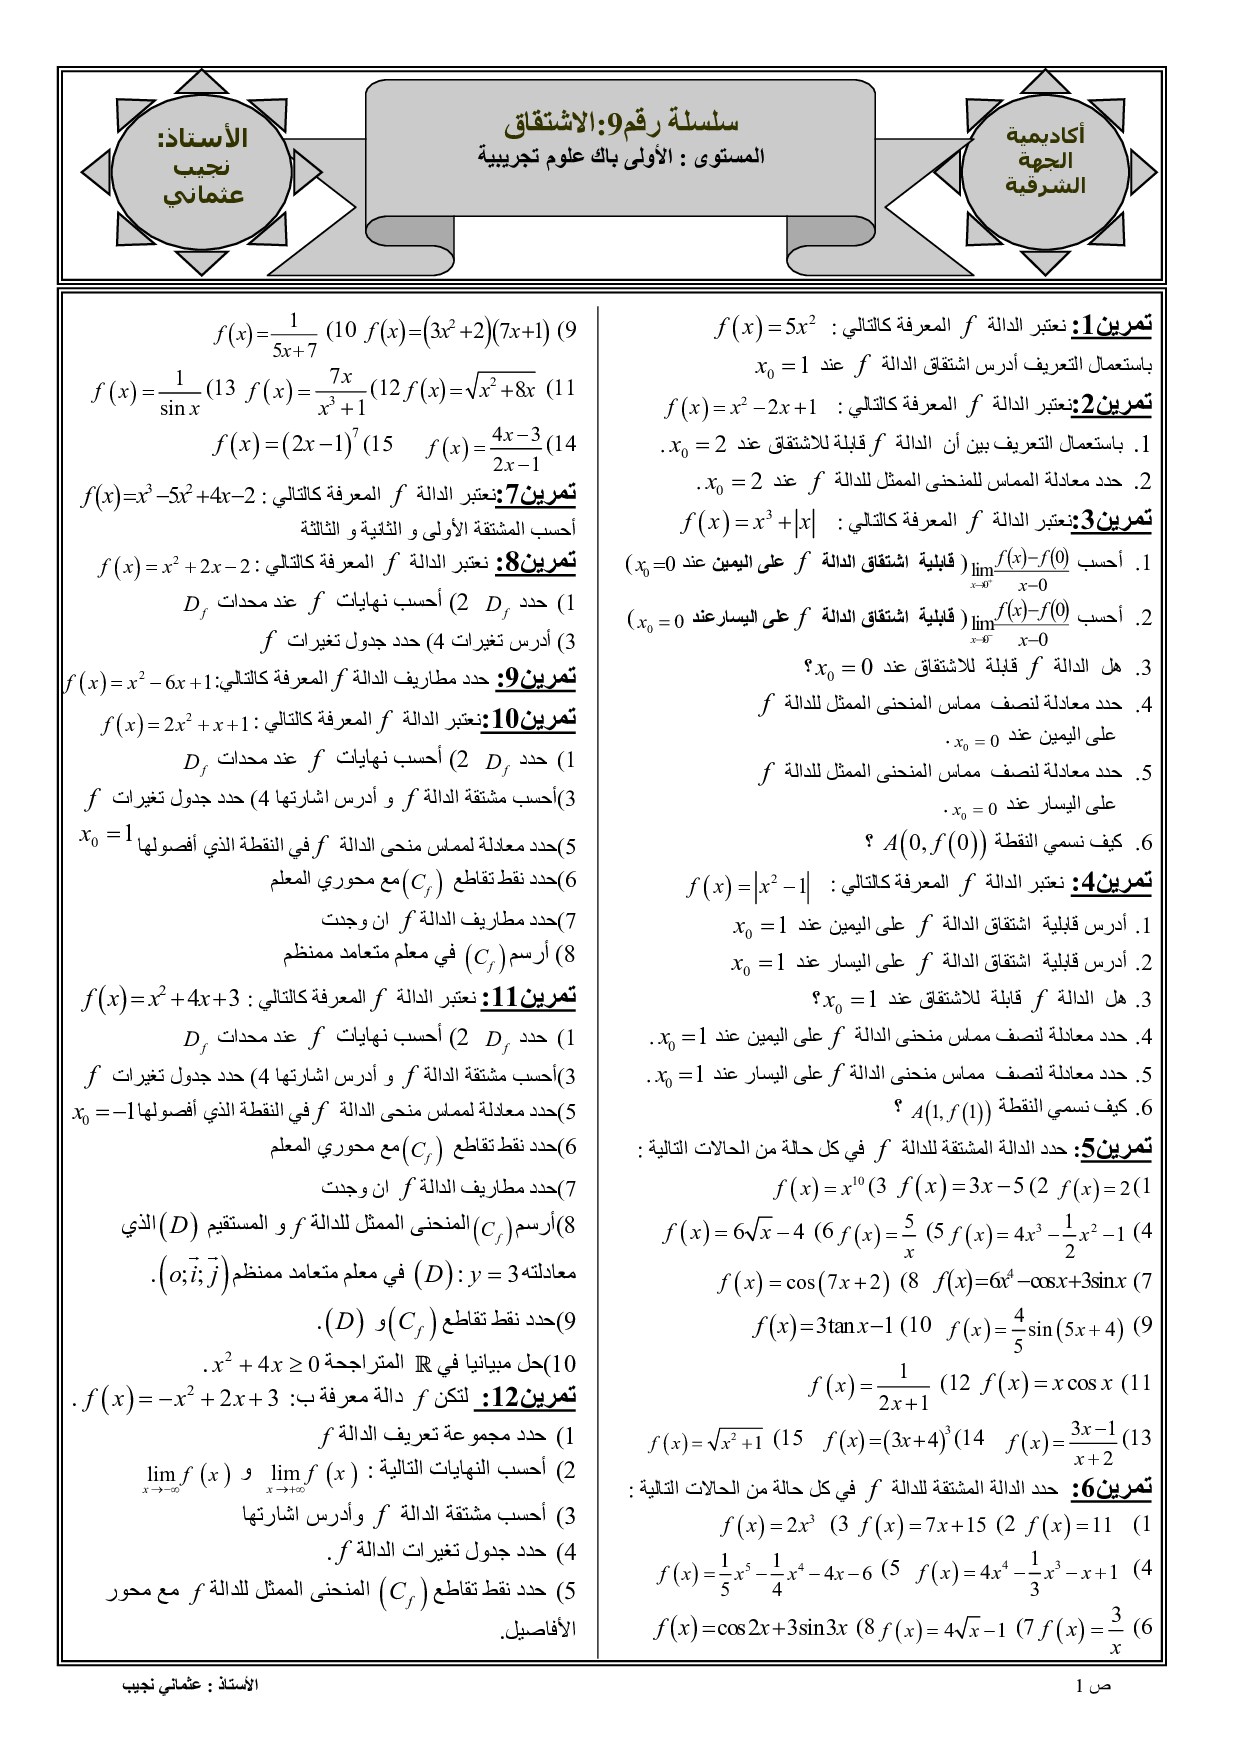 أكاديمية
الجهة
الشرقية
سلسلة رقم9:الاشتقاق
المستوى : الأولى باك علوم تجريبية
الأستاذ:
نجيب
عثماني
تمرين1: نعتبر الدالة f المعرفة كالتالي : f(x)=5x²
باستعمال التعريف أدرس اشتقاق الدالة f عند x₀=1
تمرين2:نعتبر الدالة f المعرفة كالتالي : f(x)=x²−2x+1
1. باستعمال التعريف بين أن الدالة f قابلة للاشتقاق عند x₀=2.
2. حدد معادلة المماس للمنحنى الممثل للدالة f عند x₀=2.
تمرين3:نعتبر الدالة f المعرفة كالتالي : f(x)=x³+|x|
1. أحسب lim_{x→0⁺} (f(x)−f(0))/(x−0) ( قابلية اشتقاق الدالة f على اليمين عند x₀=0 )
2. أحسب lim_{x→0⁻} (f(x)−f(0))/(x−0) ( قابلية اشتقاق الدالة f على اليسارعند x₀=0 )
3. هل الدالة f قابلة للاشتقاق عند x₀=0؟
4. حدد معادلة لنصف مماس المنحنى الممثل للدالة f
على اليمين عند x₀=0.
5. حدد معادلة لنصف مماس المنحنى الممثل للدالة f
على اليسار عند x₀=0.
6. كيف نسمي النقطة A(0,f(0)) ؟
تمرين4: نعتبر الدالة f المعرفة كالتالي : f(x)=|x²−1|
1. أدرس قابلية اشتقاق الدالة f على اليمين عند x₀=1
2. أدرس قابلية اشتقاق الدالة f على اليسار عند x₀=1
3. هل الدالة f قابلة للاشتقاق عند x₀=1؟
4. حدد معادلة لنصف مماس منحنى الدالة f على اليمين عند x₀=1.
5. حدد معادلة لنصف مماس منحنى الدالة f على اليسار عند x₀=1.
6. كيف نسمي النقطة A(1,f(1)) ؟
تمرين5: حدد الدالة المشتقة للدالة f في كل حالة من الحالات التالية :
1) f(x)=2 2) f(x)=3x−5 3) f(x)=x¹⁰
4) f(x)=4x³−(1/2)x²−1 5) f(x)=5/x 6) f(x)=6√x−4
7) f(x)=6x⁴−cosx+3sinx 8) f(x)=cos(7x+2)
9) f(x)=(4/5)sin(5x+4) 10) f(x)=3tanx−1
11) f(x)=xcosx 12) f(x)=1/(2x+1)
13) f(x)=(3x−1)/(x+2) 14) f(x)=(3x+4)³ 15) f(x)=√(x²+1)
تمرين6: حدد الدالة المشتقة للدالة f في كل حالة من الحالات التالية :
1) f(x)=11 2) f(x)=7x+15 3) f(x)=2x³
4) f(x)=4x⁴−(1/3)x³−x+1 5) f(x)=(1/5)x⁵−(1/4)x⁴−4x−6
6) f(x)=3/x 7) f(x)=4√x−1 8) f(x)=cos2x+3sin3x
9) f(x)=(3x²+2)(7x+1) 10) f(x)=1/(5x+7)
11) f(x)=√(x²+8x) 12) f(x)=7x/(x³+1) 13) f(x)=1/sin x
14) f(x)=(4x−3)/(2x−1) 15) f(x)=(2x−1)⁷
تمرين7:نعتبر الدالة f المعرفة كالتالي : f(x)=x³−5x²+4x−2
أحسب المشتقة الأولى و الثانية و الثالثة
تمرين8: نعتبر الدالة f المعرفة كالتالي : f(x)=x²+2x−2
1) حدد D_f 2) أحسب نهايات f عند محدات D_f
3) أدرس تغيرات 4) حدد جدول تغيرات f
تمرين9: حدد مطاريف الدالة f المعرفة كالتالي: f(x)=x²−6x+1
تمرين10:نعتبر الدالة f المعرفة كالتالي : f(x)=2x²+x+1
1) حدد D_f 2) أحسب نهايات f عند محدات D_f
3)أحسب مشتقة الدالة f و أدرس اشارتها 4) حدد جدول تغيرات f
5)حدد معادلة لمماس منحى الدالة f في النقطة الذي أفصولها x₀=1
6)حدد نقط تقاطع (C_f) مع محوري المعلم
7)حدد مطاريف الدالة f ان وجدت
8) أرسم (C_f) في معلم متعامد ممنظم
تمرين11: نعتبر الدالة f المعرفة كالتالي : f(x)=x²+4x+3
1) حدد D_f 2) أحسب نهايات f عند محدات D_f
3)أحسب مشتقة الدالة f و أدرس اشارتها 4) حدد جدول تغيرات f
5)حدد معادلة لمماس منحى الدالة f في النقطة الذي أفصولها x₀=−1
6)حدد نقط تقاطع (C_f) مع محوري المعلم
7)حدد مطاريف الدالة f ان وجدت
8)أرسم (C_f) المنحنى الممثل للدالة f و المستقيم (D) الذي
معادلته (D): y=3 في معلم متعامد ممنظم (o;i⃗;j⃗).
9)حدد نقط تقاطع (C_f) و (D).
10)حل مبيانيا في ℝ المتراجحة x²+4x≥0.
تمرين12: لتكن f دالة معرفة ب: f(x)=−x²+2x+3.
1) حدد مجموعة تعريف الدالة f
2) أحسب النهايات التالية : lim_{x→+∞} f(x) و lim_{x→−∞} f(x)
3) أحسب مشتقة الدالة f وأدرس اشارتها
4) حدد جدول تغيرات الدالة f.
5) حدد نقط تقاطع (C_f) المنحنى الممثل للدالة f مع محور
الأفاصيل.
ص 1
الأستاذ : عثماني نجيب